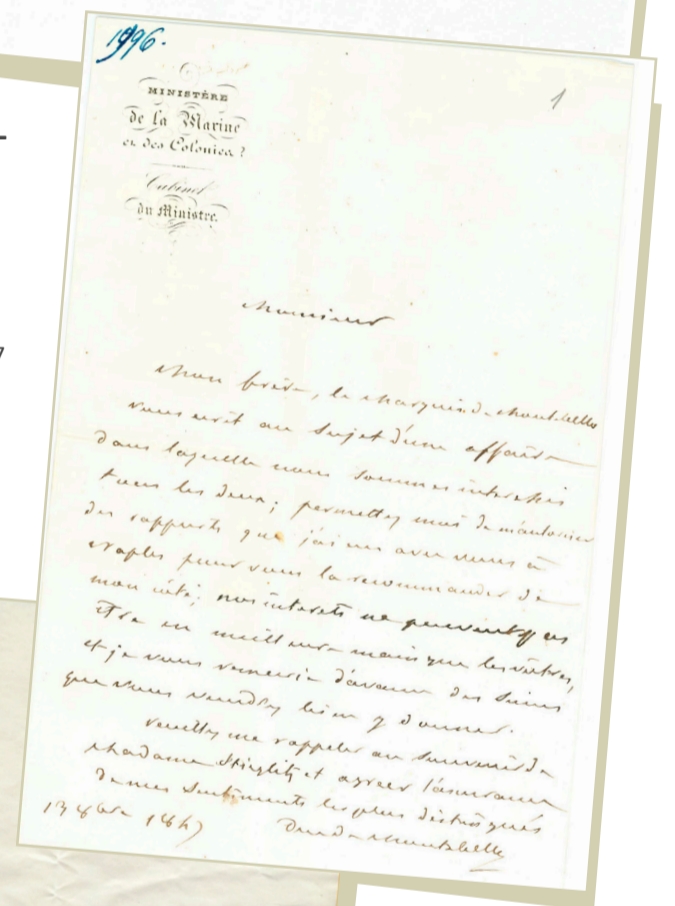 1996.
1
MINISTÈRE
de la Marine
et des Colonies
Cabinet
du Ministre.
Monsieur
Mon frère, le Marquis de Montebello
vous écrit au sujet d'une affaire
dans laquelle nous sommes interessés
tous les deux; permettez moi de m'autoriser
des rapports que j'ai eus avec vous à
Naples pour vous la recommander de
mon côté; nos interets ne peuvent pas
être en meilleure main que les vôtres,
et je vous remercie d'avance des soins
que vous voudrez bien y donner.
veuillez me rappeler au souvenir de
Madame Stieglitz et agréer l'assurance
de mes sentiments les plus distingués
13 8bre 1847
Duc de Montebello